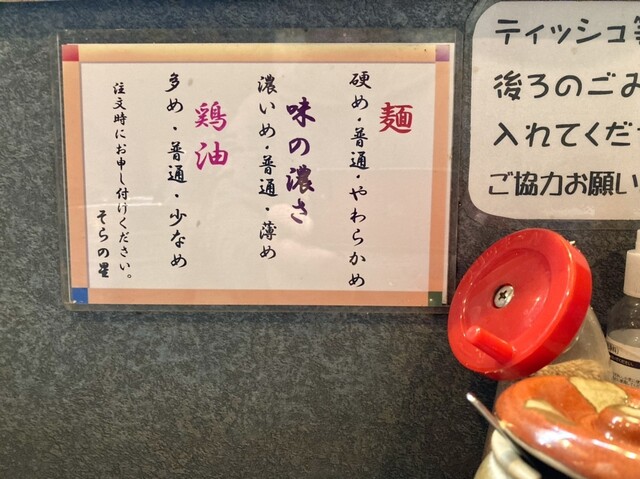 麺
硬め・普通・やわらかめ
味の濃さ
濃いめ・普通・薄め
鶏油
多め・普通・少なめ
注文時にお申し付けください。
そらの星
ティッシュ等
後ろのごみ
入れてくだ
ご協力お願い